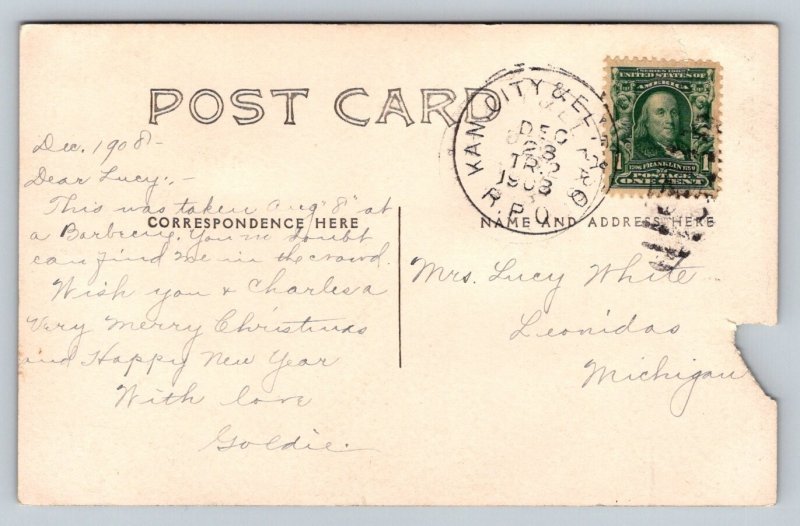 POST CARD
Dec. 1908-
Dear Lucy:-
This was taken Aug "8" at
CORRESPONDENCE HERE
a Barbecue. You no doubt
can find me in the crowd.
Wish you & Charles a
Very Merry Christmas
and Happy New Year
With love
Goldie.
KAN. CITY & EL
DEC
28
TR.
1908
R.P.O.
SERIES 1902
UNITED STATES OF
AMERICA
FRANKLIN
1 1
POSTAGE
ONE CENT
NAME AND ADDRESS HERE
Mrs. Lucy White
Leonidas
Michigan